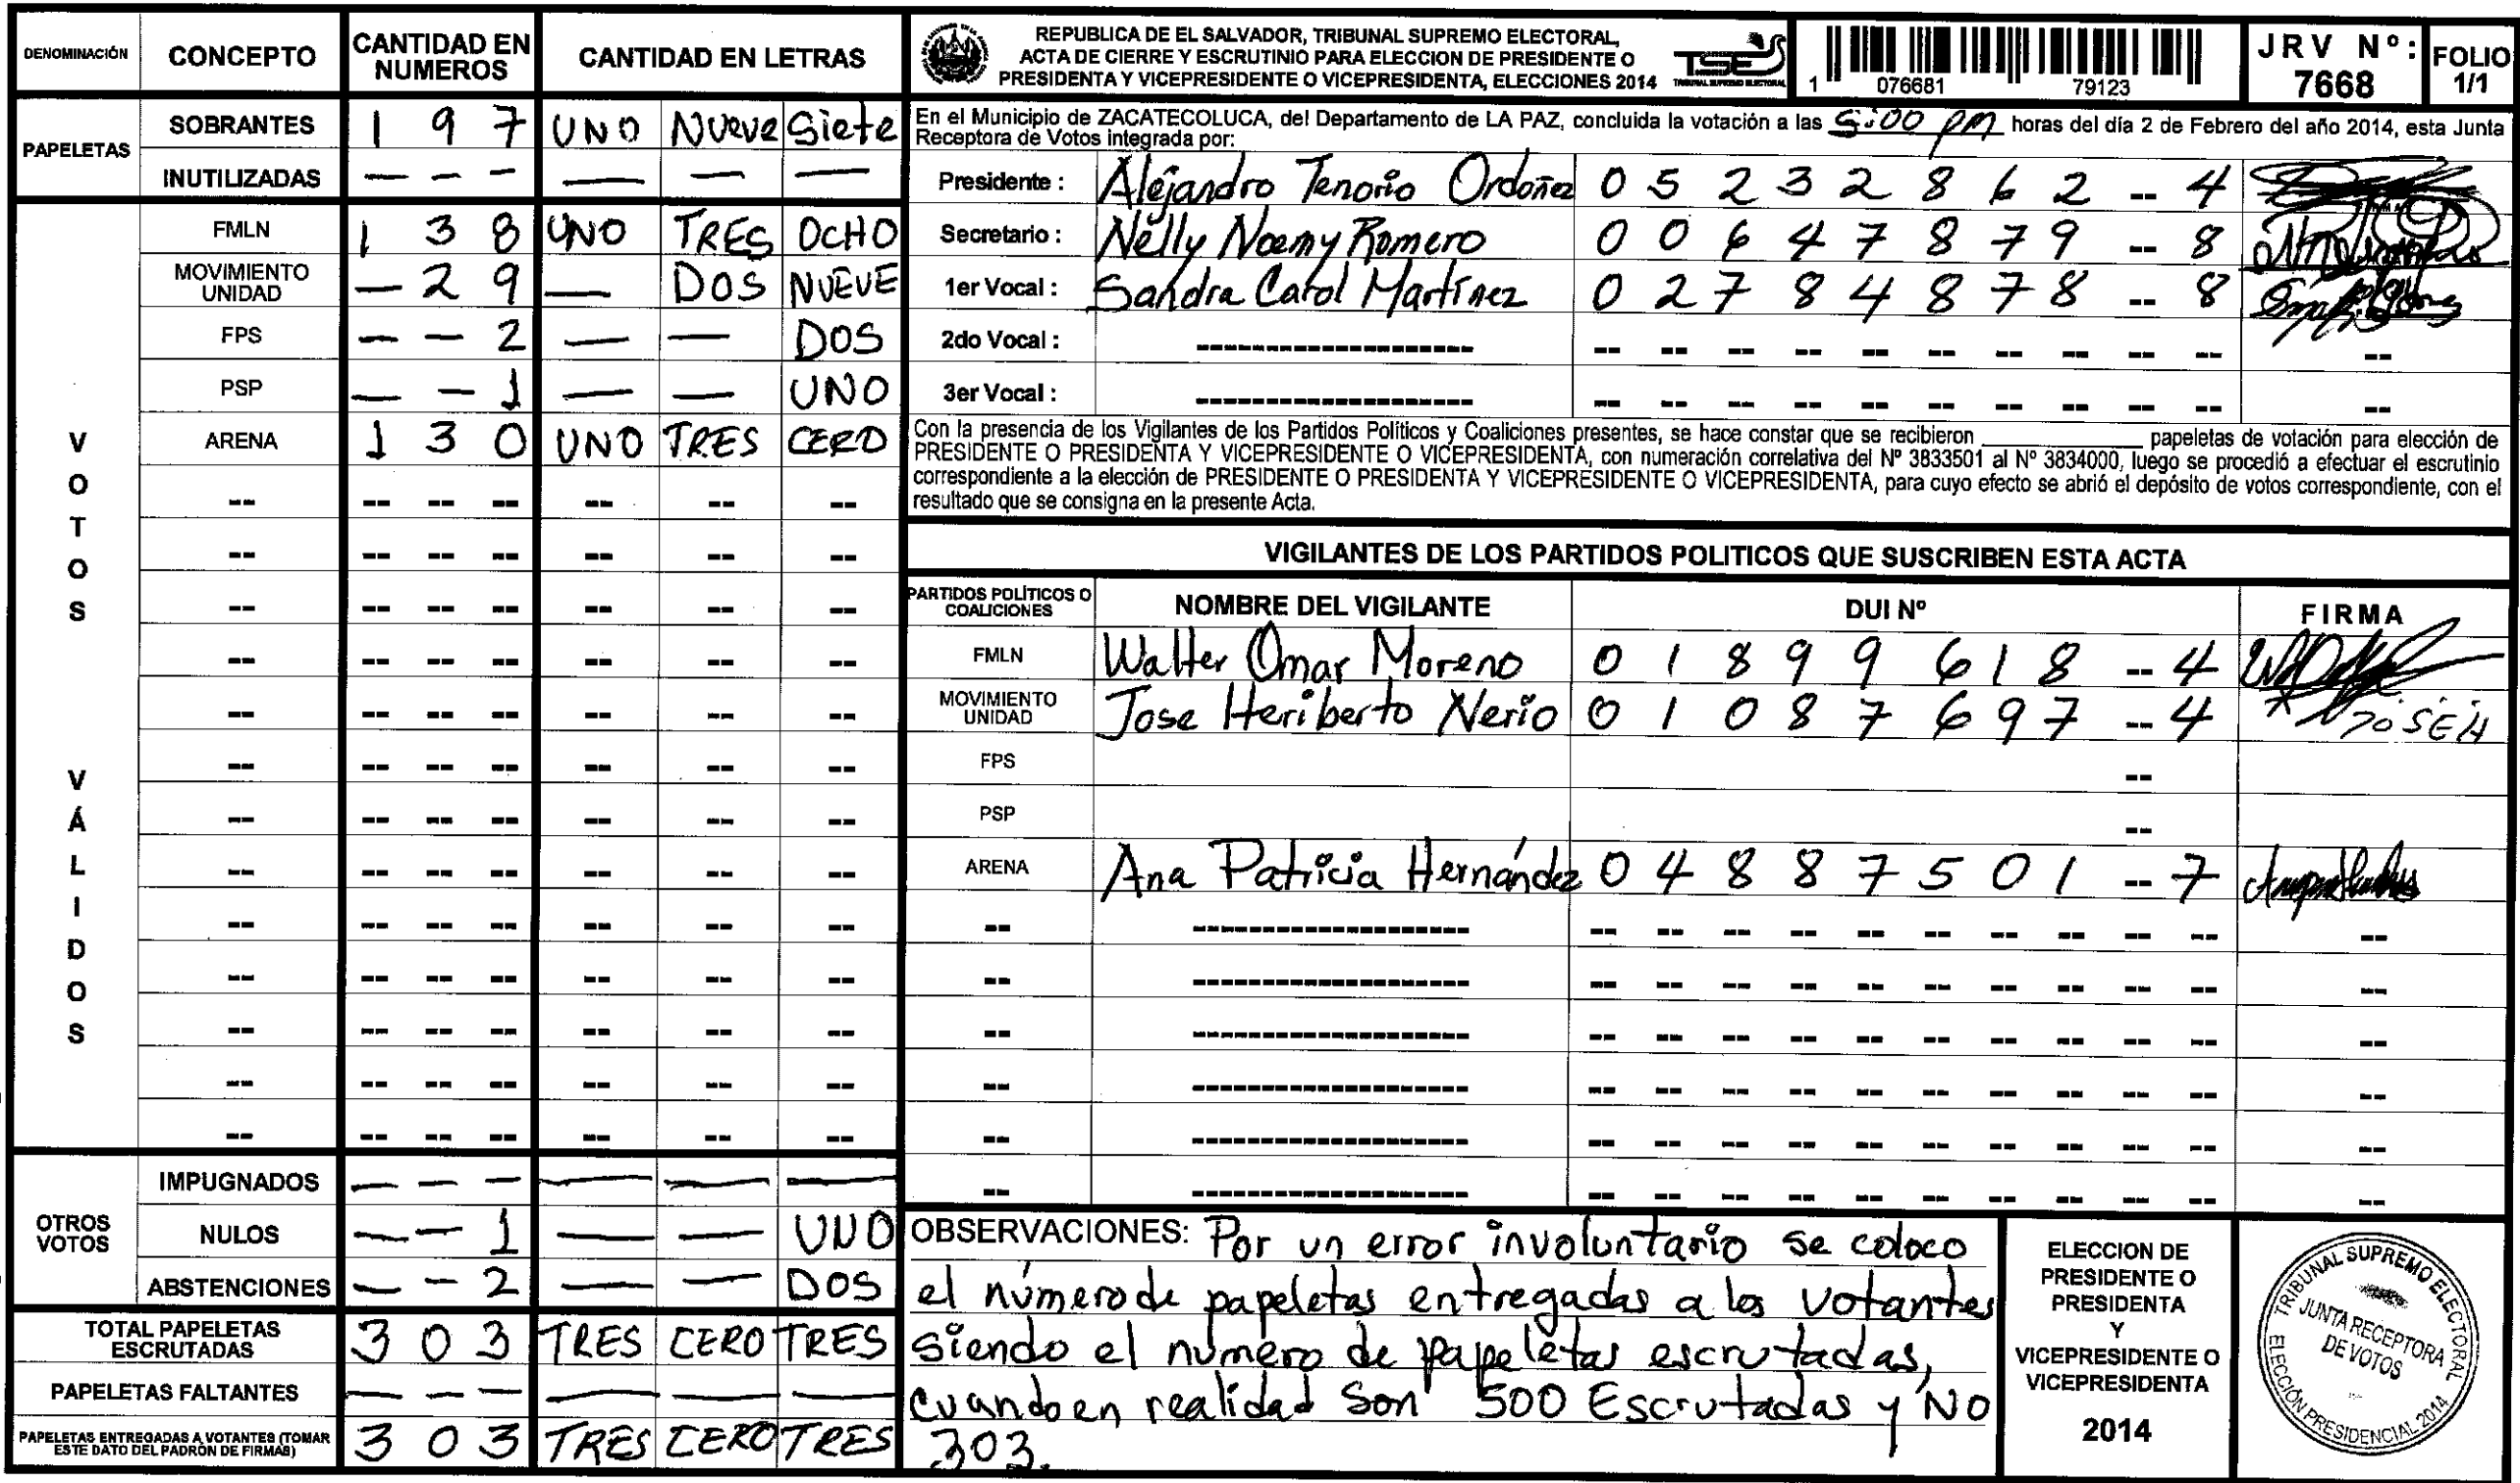 DENOMINACIÓN CONCEPTO CANTIDAD EN NUMEROS CANTIDAD EN LETRAS
PAPELETAS
SOBRANTES 1 9 7 UNO NUEVE Siete
INUTILIZADAS — — — — — —
VOTOS VÁLIDOS
FMLN 1 3 8 UNO TRES OCHO
MOVIMIENTO UNIDAD — 2 9 — DOS NUEVE
FPS — — 2 — — DOS
PSP — — 1 — — UNO
ARENA 1 3 0 UNO TRES CERO
-- -- -- -- -- -- --
-- -- -- -- -- -- --
-- -- -- -- -- -- --
-- -- -- -- -- -- --
-- -- -- -- -- -- --
-- -- -- -- -- -- --
-- -- -- -- -- -- --
-- -- -- -- -- -- --
-- -- -- -- -- -- --
-- -- -- -- -- -- --
-- -- -- -- -- -- --
-- -- -- -- -- -- --
-- -- -- -- -- -- --
OTROS VOTOS
IMPUGNADOS — — — — — —
NULOS — — 1 — — UNO
ABSTENCIONES — — 2 — — DOS
TOTAL PAPELETAS ESCRUTADAS 3 0 3 TRES CERO TRES
PAPELETAS FALTANTES — — — — — —
PAPELETAS ENTREGADAS A VOTANTES (TOMAR ESTE DATO DEL PADRÓN DE FIRMAS) 3 0 3 TRES CERO TRES
REPUBLICA DE EL SALVADOR, TRIBUNAL SUPREMO ELECTORAL,
ACTA DE CIERRE Y ESCRUTINIO PARA ELECCION DE PRESIDENTE O
PRESIDENTA Y VICEPRESIDENTE O VICEPRESIDENTA, ELECCIONES 2014
TSE
TRIBUNAL SUPREMO ELECTORAL
1 076681 79123
JRV Nº: 7668
FOLIO 1/1
En el Municipio de ZACATECOLUCA, del Departamento de LA PAZ, concluida la votación a las 5:00 pm horas del día 2 de Febrero del año 2014, esta Junta
Receptora de Votos integrada por:
Presidente : Alejandro Tenorio Ordoñez 0 5 2 3 2 8 6 2 -- 4
Secretario : Nelly Noemy Romero 0 0 6 4 7 8 7 9 -- 8
1er Vocal : Sandra Carol Martínez 0 2 7 8 4 8 7 8 -- 8
2do Vocal : ------------------- -- -- -- -- -- -- -- -- -- -- --
3er Vocal : ------------------- -- -- -- -- -- -- -- -- -- -- --
Con la presencia de los Vigilantes de los Partidos Políticos y Coaliciones presentes, se hace constar que se recibieron ____________ papeletas de votación para elección de
PRESIDENTE O PRESIDENTA Y VICEPRESIDENTE O VICEPRESIDENTA, con numeración correlativa del Nº 3833501 al Nº 3834000, luego se procedió a efectuar el escrutinio
correspondiente a la elección de PRESIDENTE O PRESIDENTA Y VICEPRESIDENTE O VICEPRESIDENTA, para cuyo efecto se abrió el depósito de votos correspondiente, con el
resultado que se consigna en la presente Acta.
VIGILANTES DE LOS PARTIDOS POLITICOS QUE SUSCRIBEN ESTA ACTA
PARTIDOS POLÍTICOS O COALICIONES NOMBRE DEL VIGILANTE DUI Nº FIRMA
FMLN Walter Omar Moreno 0 1 8 9 9 6 1 8 -- 4
MOVIMIENTO UNIDAD Jose Heriberto Nerio 0 1 0 8 7 6 9 7 -- 4 JOSE H
FPS --
PSP --
ARENA Ana Patricia Hernández 0 4 8 8 7 5 0 1 -- 7
-- ------------------- -- -- -- -- -- -- -- -- -- -- --
-- ------------------- -- -- -- -- -- -- -- -- -- -- --
-- ------------------- -- -- -- -- -- -- -- -- -- -- --
-- ------------------- -- -- -- -- -- -- -- -- -- -- --
-- ------------------- -- -- -- -- -- -- -- -- -- -- --
-- ------------------- -- -- -- -- -- -- -- -- -- -- --
OBSERVACIONES: Por un error involuntario se coloco
el número de papeletas entregadas a los votantes
siendo el numero de papeletas escrutadas,
cuando en realidad son 500 Escrutadas y NO
303.
ELECCION DE
PRESIDENTE O
PRESIDENTA
Y
VICEPRESIDENTE O
VICEPRESIDENTA
2014
TRIBUNAL SUPREMO ELECTORAL
JUNTA RECEPTORA
DE VOTOS
ELECCIÓN PRESIDENCIAL 2014